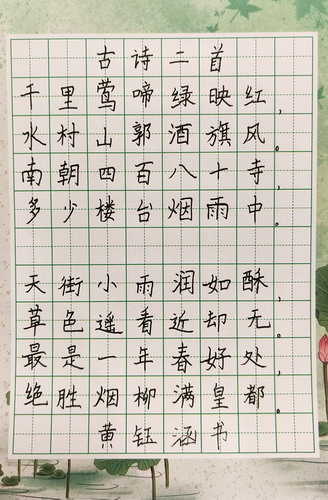 古诗二首
千里莺啼绿映红,
水村山郭酒旗风。
南朝四百八十寺,
多少楼台烟雨中。
天街小雨润如酥,
草色遥看近却无。
最是一年春好处,
绝胜烟柳满皇都。
黄钰涵书